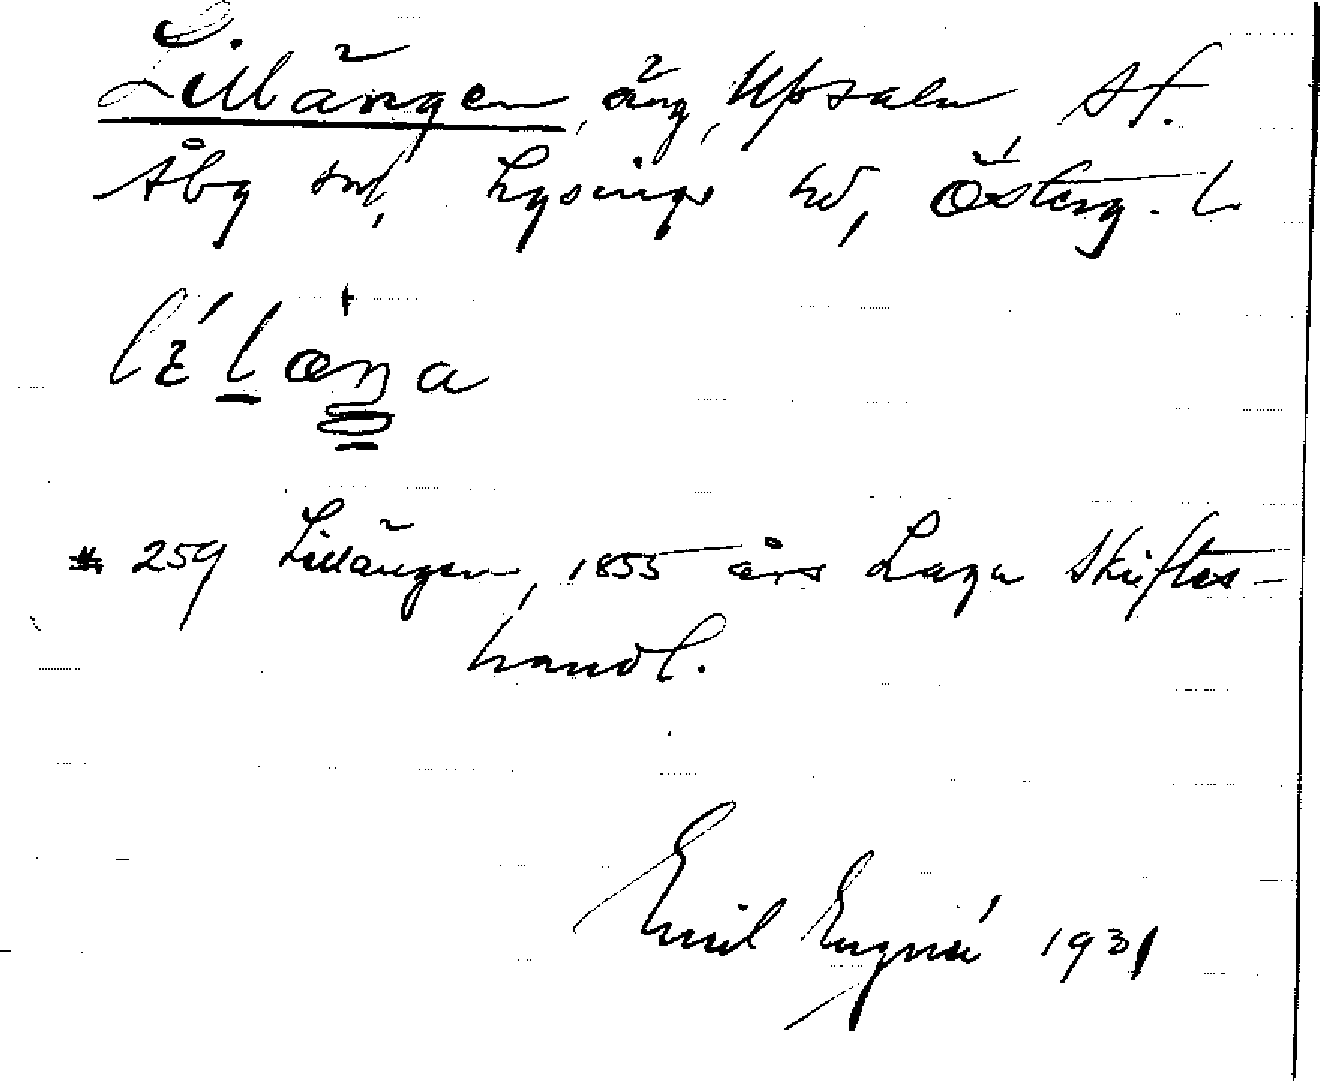 Lillängen, äng, Upsala st.
Åby sn, Lysings hd, Österg. l
# 259 Lillängen, 1855 års Laga Skiftes-
handl.
Emil 1931